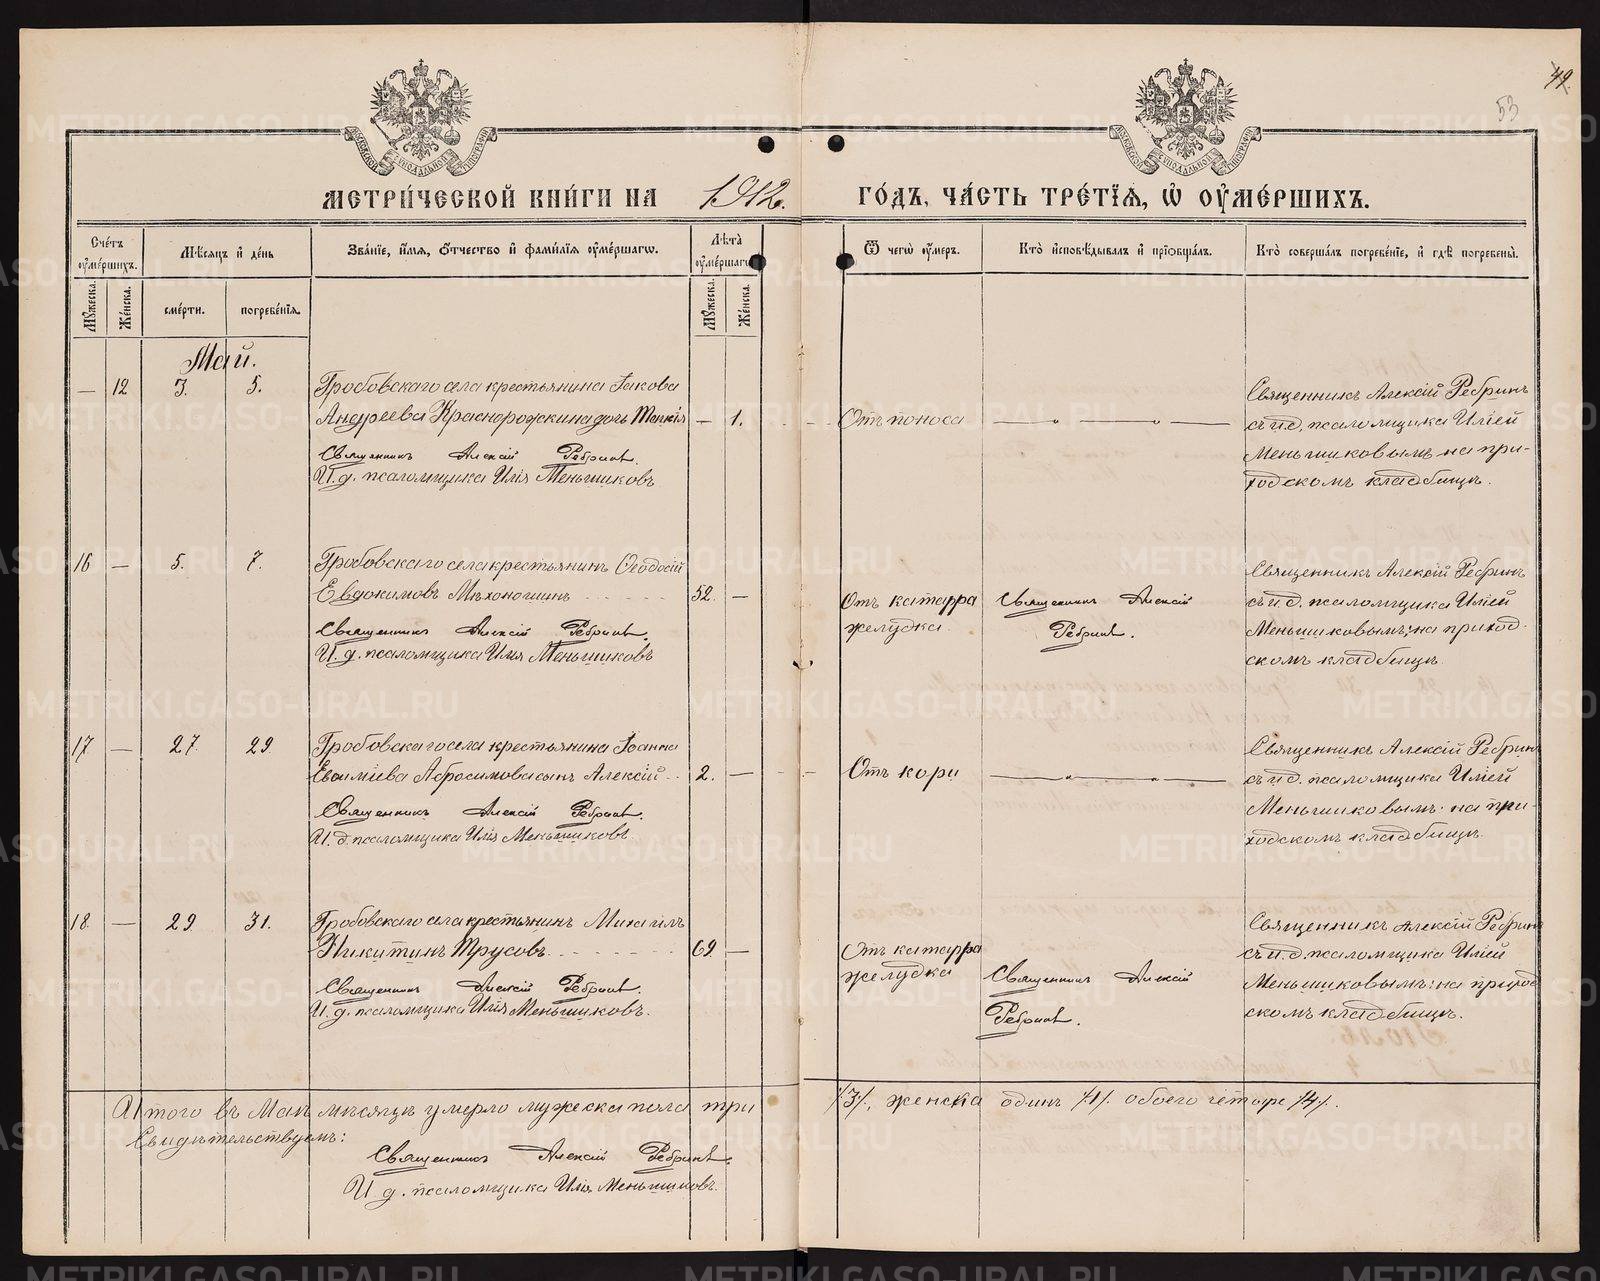 49.
53
МЕТРИ́ЧЕСКОЙ КНИ́ГИ НА 1912. ГО́ДЪ, ЧА́СТЬ ТРЕ́ТІѦ, Ѡ҆ ОУ҆МЕ́РШИХЪ.
Сче́тъ оу҆ме́ршихъ.
Мѣ́сяцъ и҆ де́нь
Зва́нїе, и҆́мя, ѻ҆́тчество и҆ фами́лїя оу҆ме́ршагѡ.
Лѣта̀ оу҆ме́ршагѡ
Ѿ чегѡ̀ оу҆́меръ.
Кто̀ и҆сповѣ́дывалъ и҆ прїѻбща́лъ.
Кто̀ соверша́лъ погребе́нїе, и҆ гдѣ̀ погребены̀.
Мꙋ́жеска.
Же́нска.
сме́рти.
погребе́нїя.
Мꙋ́жеска.
Же́нска.
Май.
— 12 3. 5. Гробовскаго села крестьянина Іакова
Андреева Краснорожскина дочь — 1.
Священникъ Алексій Ребринъ.
И. д. псаломщика Илія Меньшиковъ
Отъ поноса
Священникъ Алексій Ребринъ
съ и. д. псаломщика Иліей
Меньшиковымъ на при-
ходскомъ кладбищѣ.
16 — 5. 7. Гробовскаго села крестьянинъ Ѳеодосій
Евдокимовъ Мѣхоношинъ 52. —
Священникъ Алексій Ребринъ.
И. д. псаломщика Илія Меньшиковъ
Отъ катарра
желудка.
Священникъ Алексій
Ребринъ.
Священникъ Алексій Ребринъ
съ и. д. псаломщика Иліей
Меньшиковымъ; на приход-
скомъ кладбищѣ
17 — 27. 29 Гробовскаго села крестьянина Іоанна
Евѳиміева Абросимова сынъ Алексій 2. —
Священникъ Алексій Ребринъ.
И. д. псаломщика Илія Меньшиковъ.
Отъ кори
Священникъ Алексій Ребринъ
съ и. д. псаломщика Иліей
Меньшиковымъ: на при-
ходскомъ кладбищѣ.
18. — 29. 31. Гробовскаго села крестьянинъ Михаилъ
Никитинъ Трусовъ 69 —
Священникъ Алексій Ребринъ.
И. д. псаломщика Илія Меньшиковъ.
Отъ катарра
желудка
Священникъ Алексій
Ребринъ.
Священникъ Алексій Ребринъ
съ и. д. псаломщика Иліей
Меньшиковымъ: на приход
скомъ кладбищѣ.
Итого въ Маѣ мѣсяцѣ умерло мужеска пола три /3/, женска одинъ /1/. обоего четыре /4/.
Свидѣтельствуемъ:
Священникъ Алексій Ребринъ.
И. д. псаломщика Илія Меньшиковъ.
METRIKI.GASO-URAL.RU